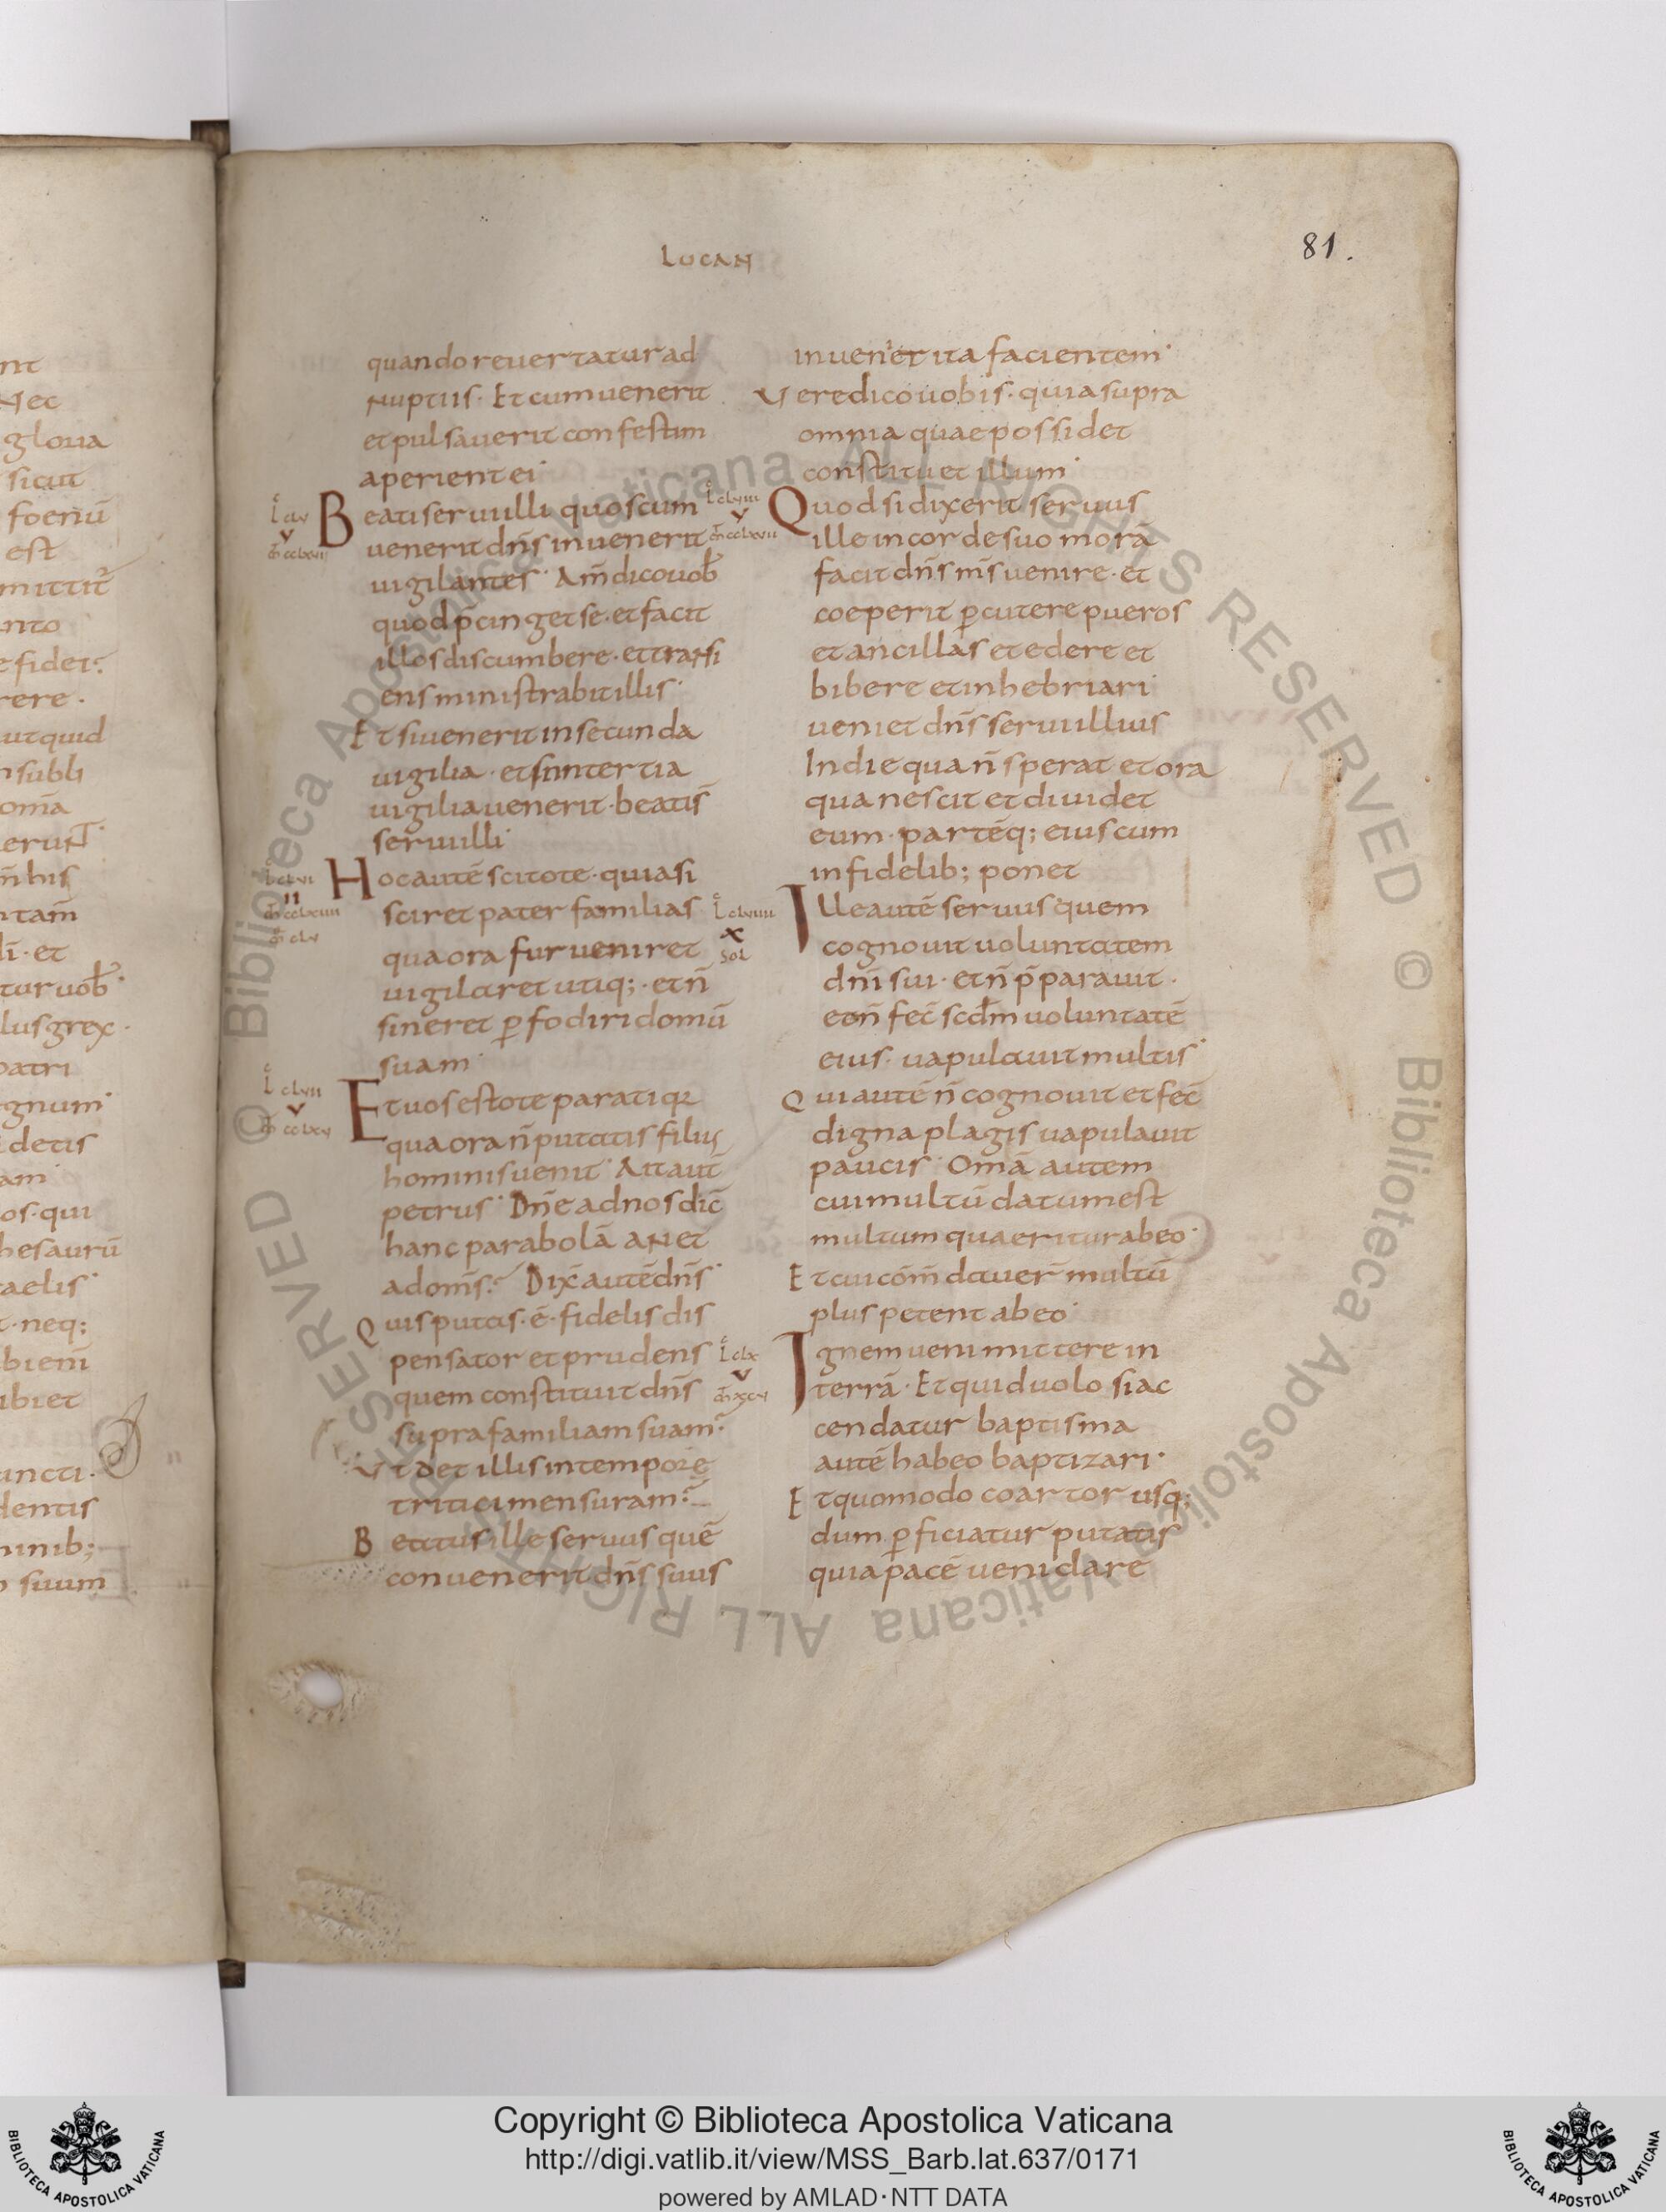 LUCAN
81.
quando reuertatur ad
nuptiis· Et cum uenerit
et pulsauerit confestim
aperient ei·
Beati serui illi quos cum
uenerit dn̄s inuenerit
uigilantes· Am̄ dico uob̄
quod p̄cinget se· et facit
illos discumbere· et transi
ens ministrabit illis·
Et si uenerit in secunda
uigilia· et si in tertia
uigilia uenerit· beatis̄
serui illi·
Hoc autē scitote· quia si
sciret pater familias
qua ora fur ueniret
uigilaret utiq;· et n̄
sineret ꝑfodiri domū
suam·
Et uos estote parati qꝛ
qua ora n̄ putatis filius
hominis uenit· Ait aut̄
petrus· Dn̄e ad nos dic̄
hanc parabolā an et
ad om̄s? Dix̄ autē dn̄s·
Quis putas· ē· fidelis dis
pensator et prudens
quem constituit dn̄s
supra familiam suam·
Ut det illis in tempore
tritici mensuram·
Beatus ille seruus quē
con uenerit dn̄s suus
inuenerit ita facientem·
Uere dico uobis· quia supra
omnia quae possidet
constituet illum·
Quod si dixerit seruus
ille in corde suo morā
facit dn̄s m̄s uenire· et
coeperit ꝑcutere pueros
et ancillas et edere et
bibere et inhebriari
ueniet dn̄s serui illius
In die qua n̄ sperat et ora
qua nescit et diuidet
eum· partēq; eius cum
infidelib; ponet
Ille autē seruus quem
cognouit uoluntatem
dn̄i sui· et n̄ p̄parauit·
et n̄ fec̄ scd̄m uoluntatē
eius· uapulauit multis·
Qui autē n̄ cognouit et fec̄
digna plagis uapulauit
paucis· Om̄ā autem
cui multū datum est
multum quaeritur ab eo·
Et cui com̄dauer̄ multū
plus petent ab eo·
Ignem ueni mittere in
terrā· Et quid uolo si ac
cendatur baptisma
autē habeo baptizari·
Et quomodo coartor usq;
dum ꝑficiatur putatis
quia pacē ueni dare
Copyright © Biblioteca Apostolica Vaticana
http://digi.vatlib.it/view/MSS_Barb.lat.637/0171
powered by AMLAD·NTT DATA